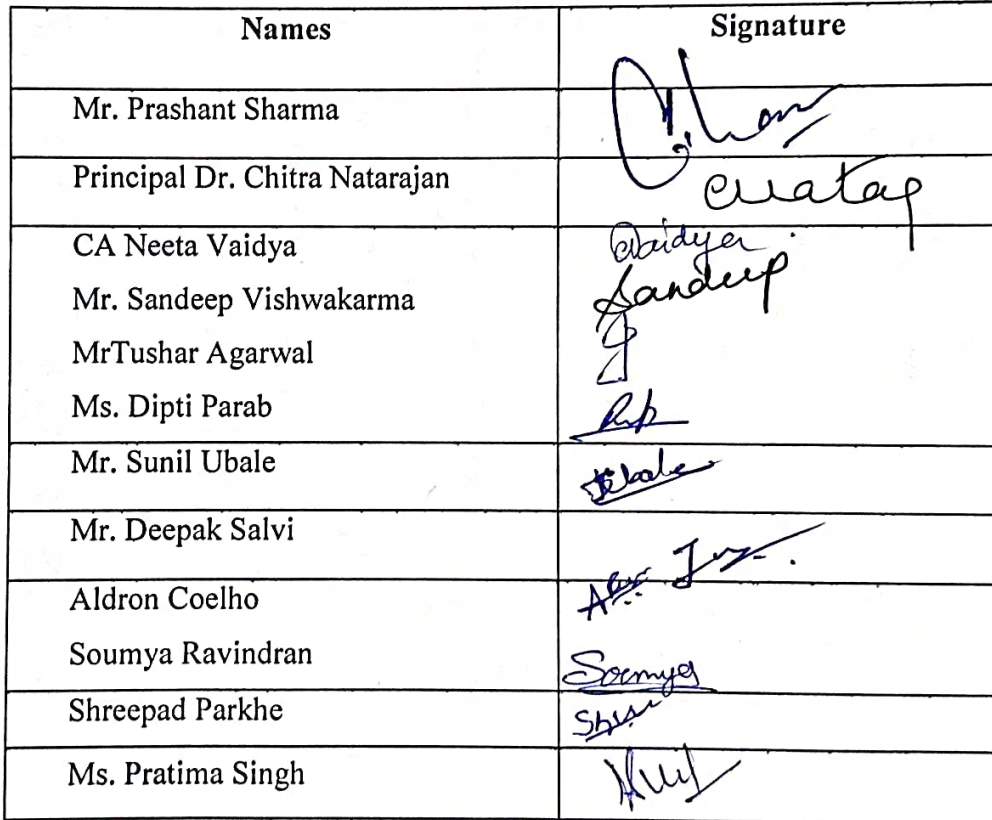 Names Signature
Mr. Prashant Sharma
Principal Dr. Chitra Natarajan
CA Neeta Vaidya Vaidya
Mr. Sandeep Vishwakarma Sandeep
MrTushar Agarwal
Ms. Dipti Parab
Mr. Sunil Ubale
Mr. Deepak Salvi
Aldron Coelho
Soumya Ravindran Soumya
Shreepad Parkhe
Ms. Pratima Singh